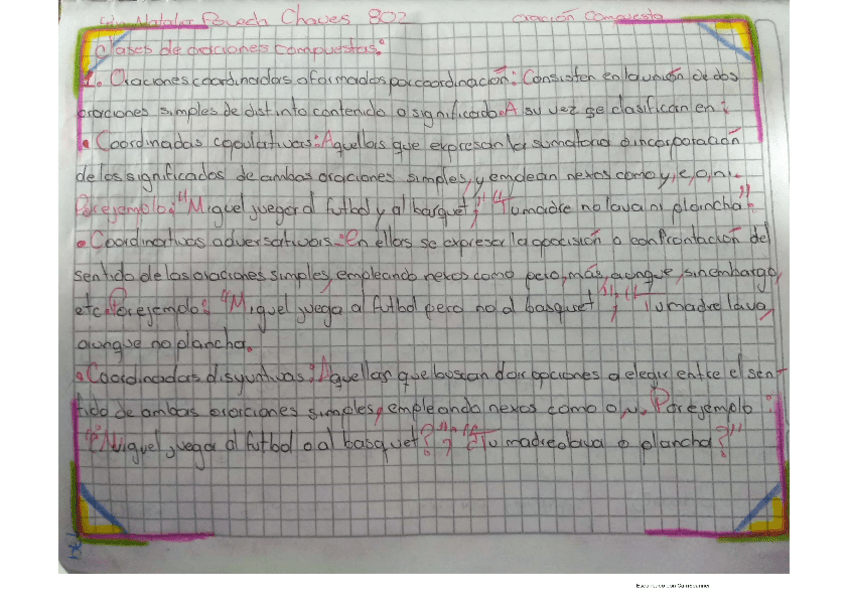 Natalia Chaves 802 oración Compuesta
Clases de oraciones compuestas:
1. Oraciones coordinadas o formadas por coordinación: Consisten en la unión de dos
oraciones simples de distinto contenido o significado. A su vez se clasifican en:
• Coordinadas copulativas: Aquellas que expresan la sumatoria o incorporación
de los significados de ambas oraciones simples, y emplean nexos como y, e, o, ni.
Por ejemplo: "Miguel juega al futbol y al basquet"; "Tu madre no lava ni plancha".
• Coordinativas adversativas: En ellas se expresa la oposición o confrontación del
sentido de las oraciones simples, empleando nexos como pero, más, aunque, sin embargo,
etc. Por ejemplo: "Miguel juega al futbol pero no al basquet"; "Tu madre lava,
aunque no plancha.
• Coordinadas disyuntivas: Aquellas que buscan dar opciones a elegir entre el sen-
tido de ambas oraciones simples, empleando nexos como o, u. Por ejemplo:
"¿Miguel juega al futbol o al basquet?"; "¿Tu madre lava o plancha?"
Escaneado con CamScanner